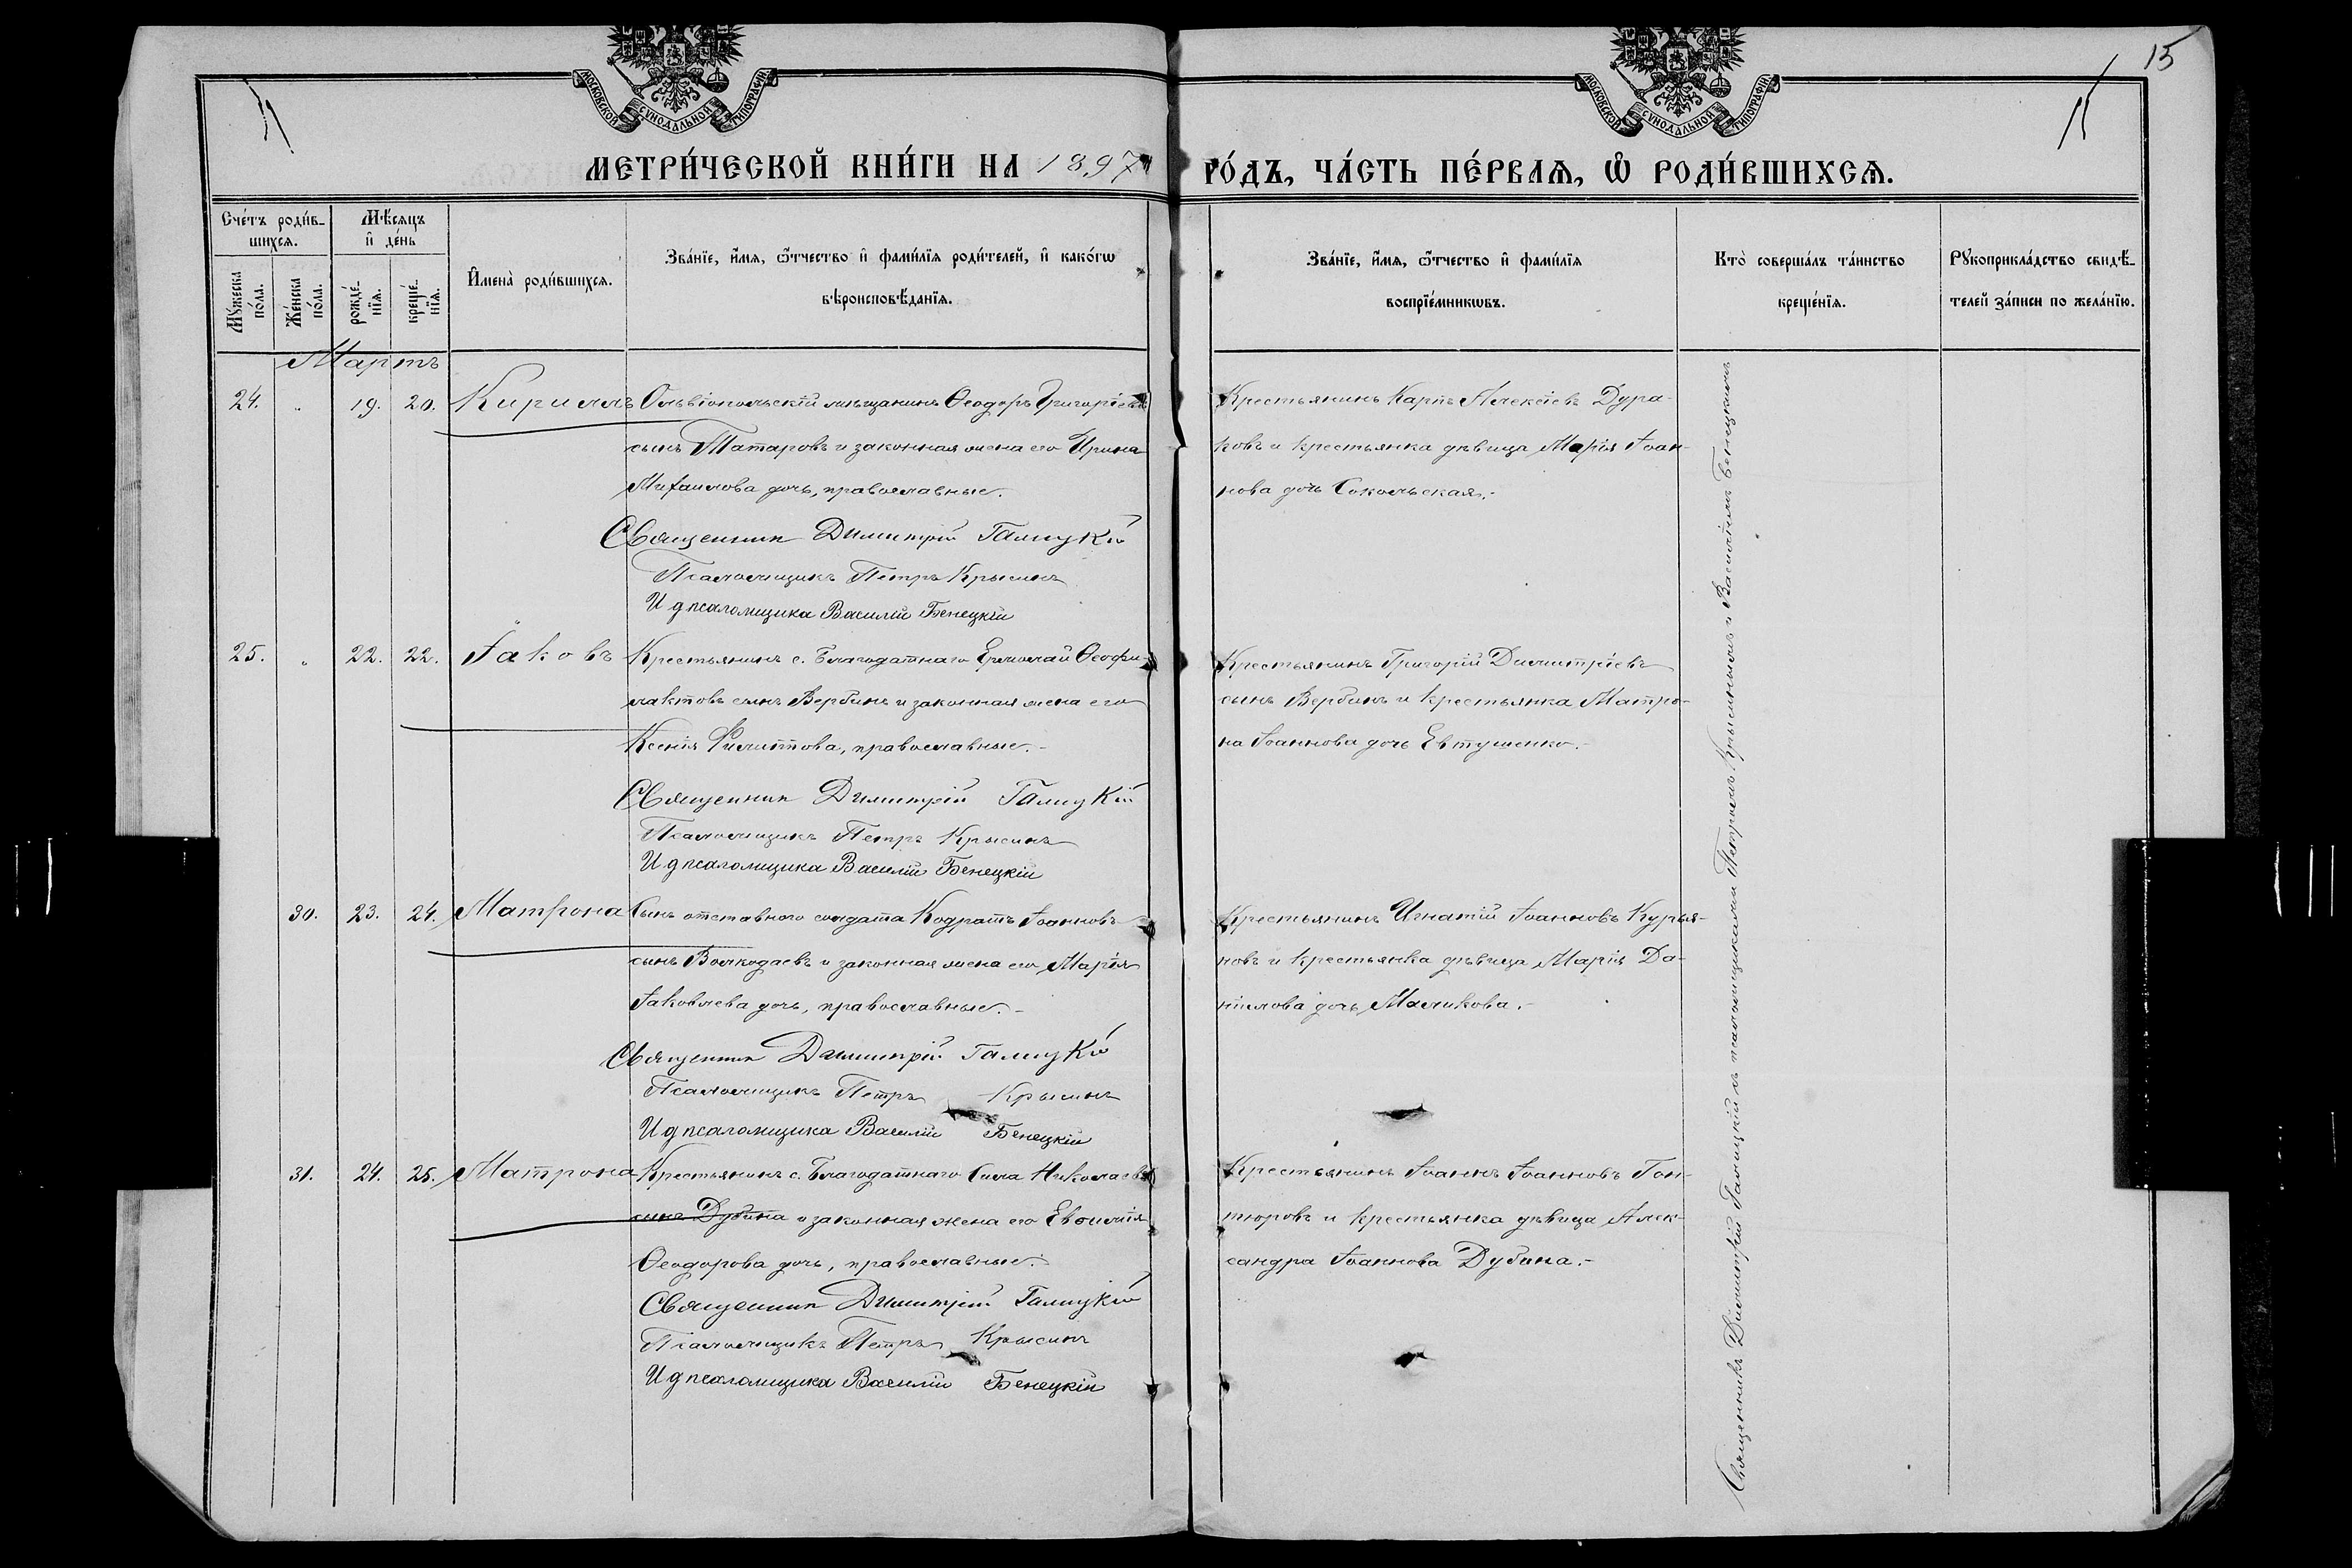 15
МОСКОВСКОЙ СѴНОДАЛЬНОЙ ТИПОГРАФІИ
МОСКОВСКОЙ СѴНОДАЛЬНОЙ ТИПОГРАФІИ
МЕТРИ́ЧЕСКОЙ КНИ́ГИ НА 1897 ГО́ДЪ, ЧА́СТЬ ПЕ́РВАЯ, Ѡ РОДИ́ВШИХСЯ.
Сче́тъ роди́в-
шихся.
Мѣ́сяцъ
и де́нь
Му́жеска
по́ла.
Же́нска
по́ла.
рожде́-
нїя.
креще́-
нїя.
Имена̀ роди́вшихся.
Зва́нїе, и́мя, ѻ́тчество и фами́лїя роди́телей, и како́гѡ
вѣроисповѣ́данїя.
Зва́нїе, и́мя, ѻ́тчество и фами́лїя
воспрїе́мникѡвъ.
Кто̀ соверша́лъ та́инство
креще́нїя.
Рꙋкоприкла́дство свидѣ́-
телей за́писи по жела́нїю.
Мартъ
24. " 19. 20. Кириллъ Ольвіопольскій мѣщанинъ Ѳеодоръ Григоріевъ
сынъ Татаровъ и законная жена его Ирина
Михаилова дочь, православные.
Священник Димитрій Галицкій
Псаломщикъ Петръ Крысинъ
И д псаломщика Василій Бенецкій
Крестьянинъ Карпъ Алексіевъ Дура-
ковъ и крестьянка дѣвица Марія Іоан-
нова дочь Сокольская.-
25. " 22. 22. Іаковъ Крестьянинъ с. Благодатнаго Ермолай Ѳеофи-
лактовъ сынъ Вербинъ и законная жена его
Ксенія Филиппова, православные.-
Священник Димитрій Галицкій
Псаломщикъ Петръ Крысинъ
И д псаломщика Василій Бенецкій
Крестьянинъ Григорій Димитріевъ
сынъ Вербинъ и крестьянка Матро-
на Іоаннова дочь Евтушенко.-
30. 23. 24. Матрона Сынъ отставного солдата Кодратъ Іоанновъ
сынъ Волкодаевъ и законная жена его Марія
Іаковлева дочь, православные.-
Священник Димитрій Галицкій
Псаломщикъ Петръ Крысинъ
И д псаломщика Василій Бенецкій
Крестьянинъ Игнатій Іоанновъ Курья-
новъ и крестьянка дѣвица Марія Да-
ніилова дочь Маликова.-
31. 24. 25. Матрона Крестьянинъ с. Благодатнаго Сила Николаевъ
сынъ Дубина и законная жена его Евѳимія
Ѳеодорова дочь, православные.-
Священник Димитрій Галицкій
Псаломщикъ Петръ Крысинъ
И д псаломщика Василій Бенецкій
Крестьянинъ Іоаннъ Іоанновъ Гон-
тюровъ и крестьянка дѣвица Алек-
сандра Іоаннова Дубина.-
Священникъ Димитрій Галицкій съ псаломщиками Петромъ Крысинымъ и Василіемъ Бенецкимъ